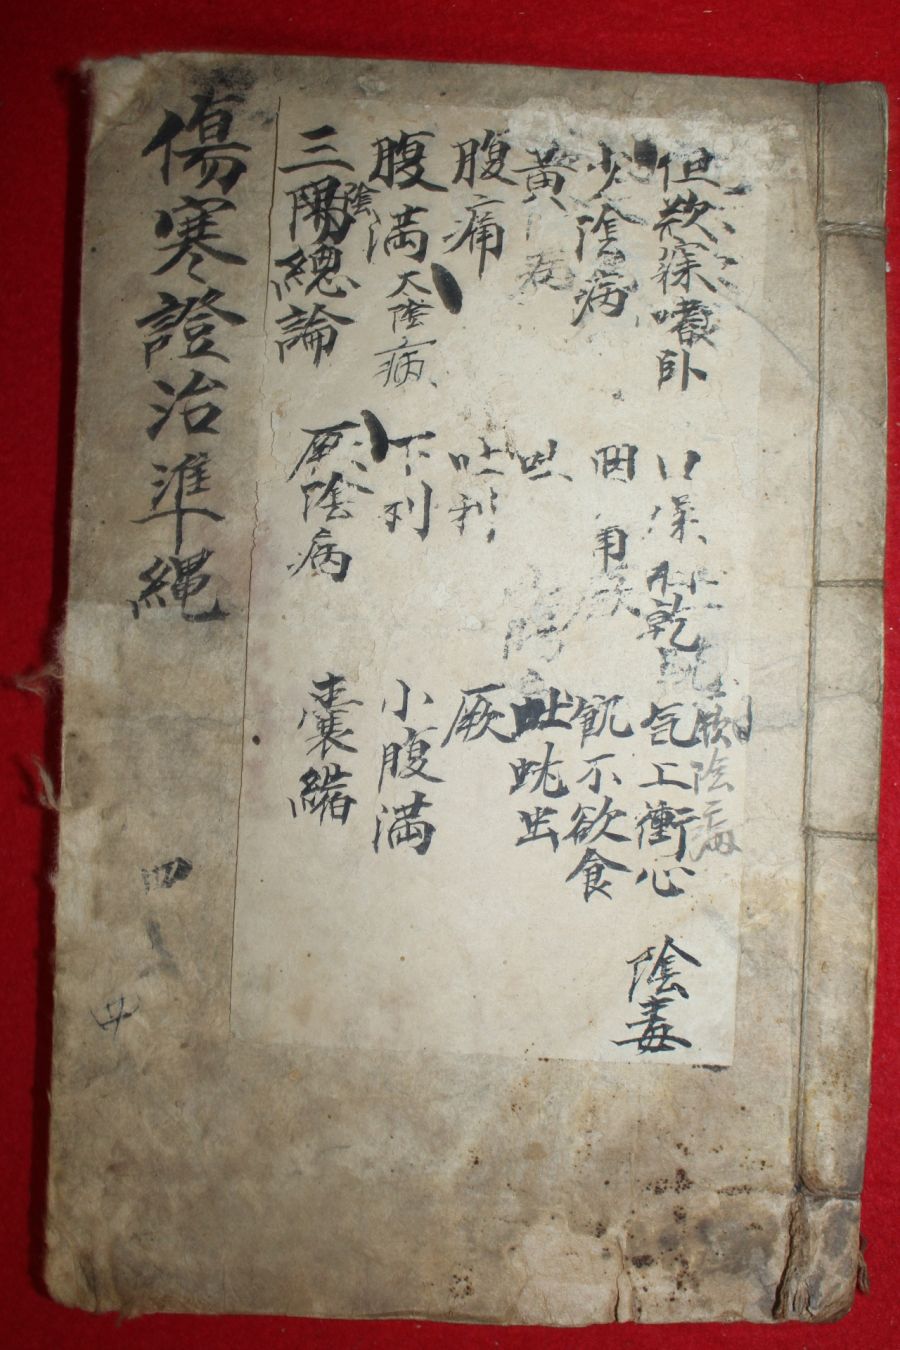 傷寒證治準繩
四
三陽陰總論
腹滿 太陰病
腹痛
黃
少陰病
但欲寐嗜臥
厥陰病
下利
吐利
咽
口燥
乾
囊縮
小腹滿
厥
吐蚘出
飢不欲食
气上衝心
陰毒